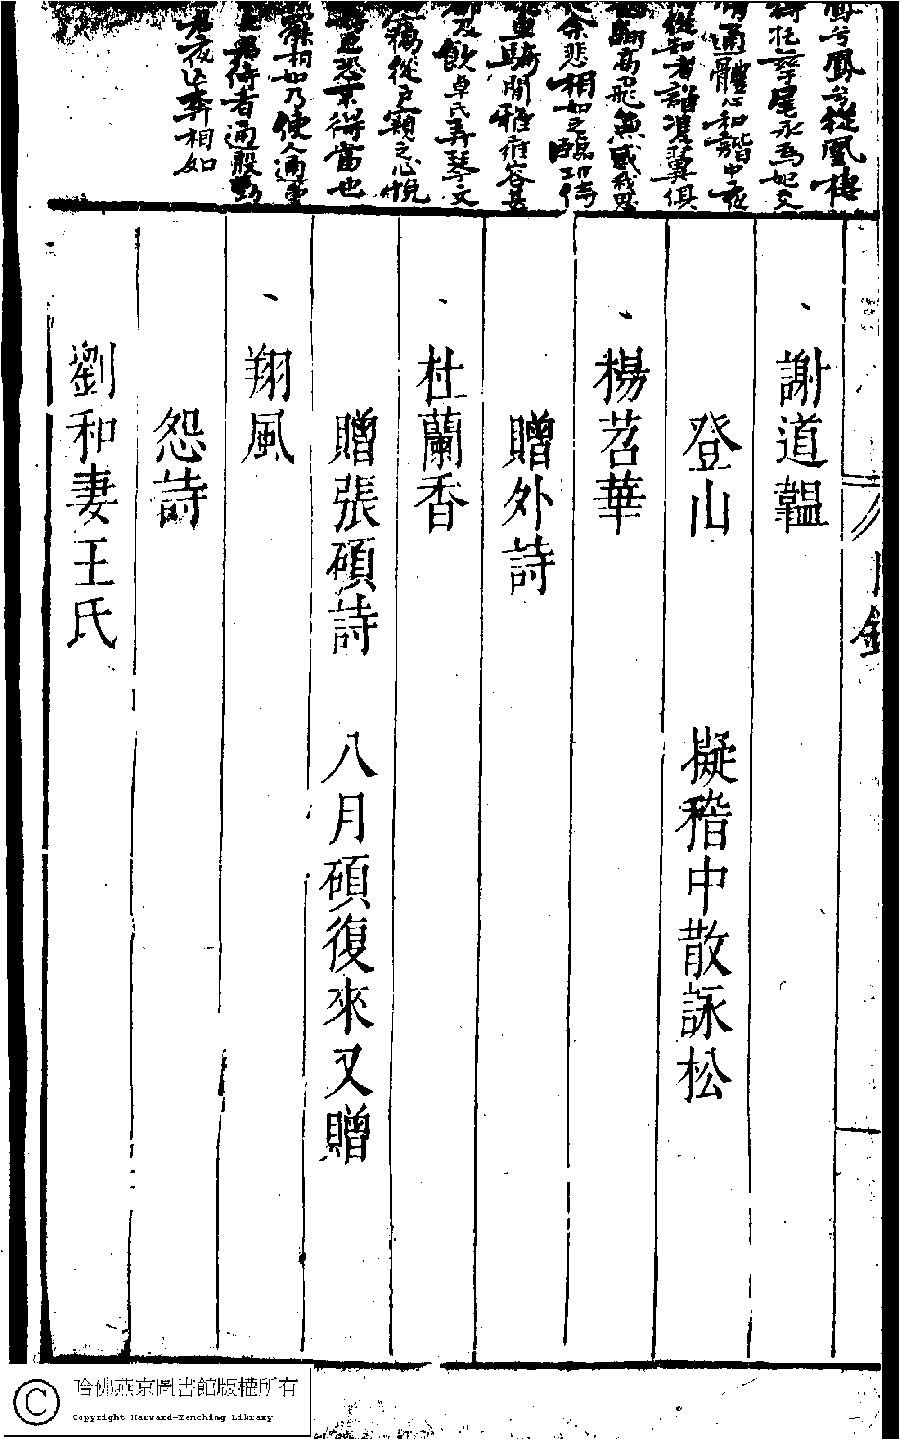 鳳兮鳳兮從凰棲
托孳尾永為妃交
通體心和諧中夜
從知者誰雙翼俱
翻高飛無感我思
余悲相如之臨邛
車騎閒雅雍容甚
都及飲卓氏弄琴文
竊從戶窺之心悅
恐不得當也
罷相如乃使人通重
侍者通殷勤
君夜亡奔相如
目錄
謝道韞
登山 擬稽中散詠松
楊苕華
贈外詩
杜蘭香
贈張碩詩 八月碩復來又贈
翔風
怨詩
劉和妻王氏
哈佛燕京圖書館版權所有
Copyright Harvard-Yenching Library